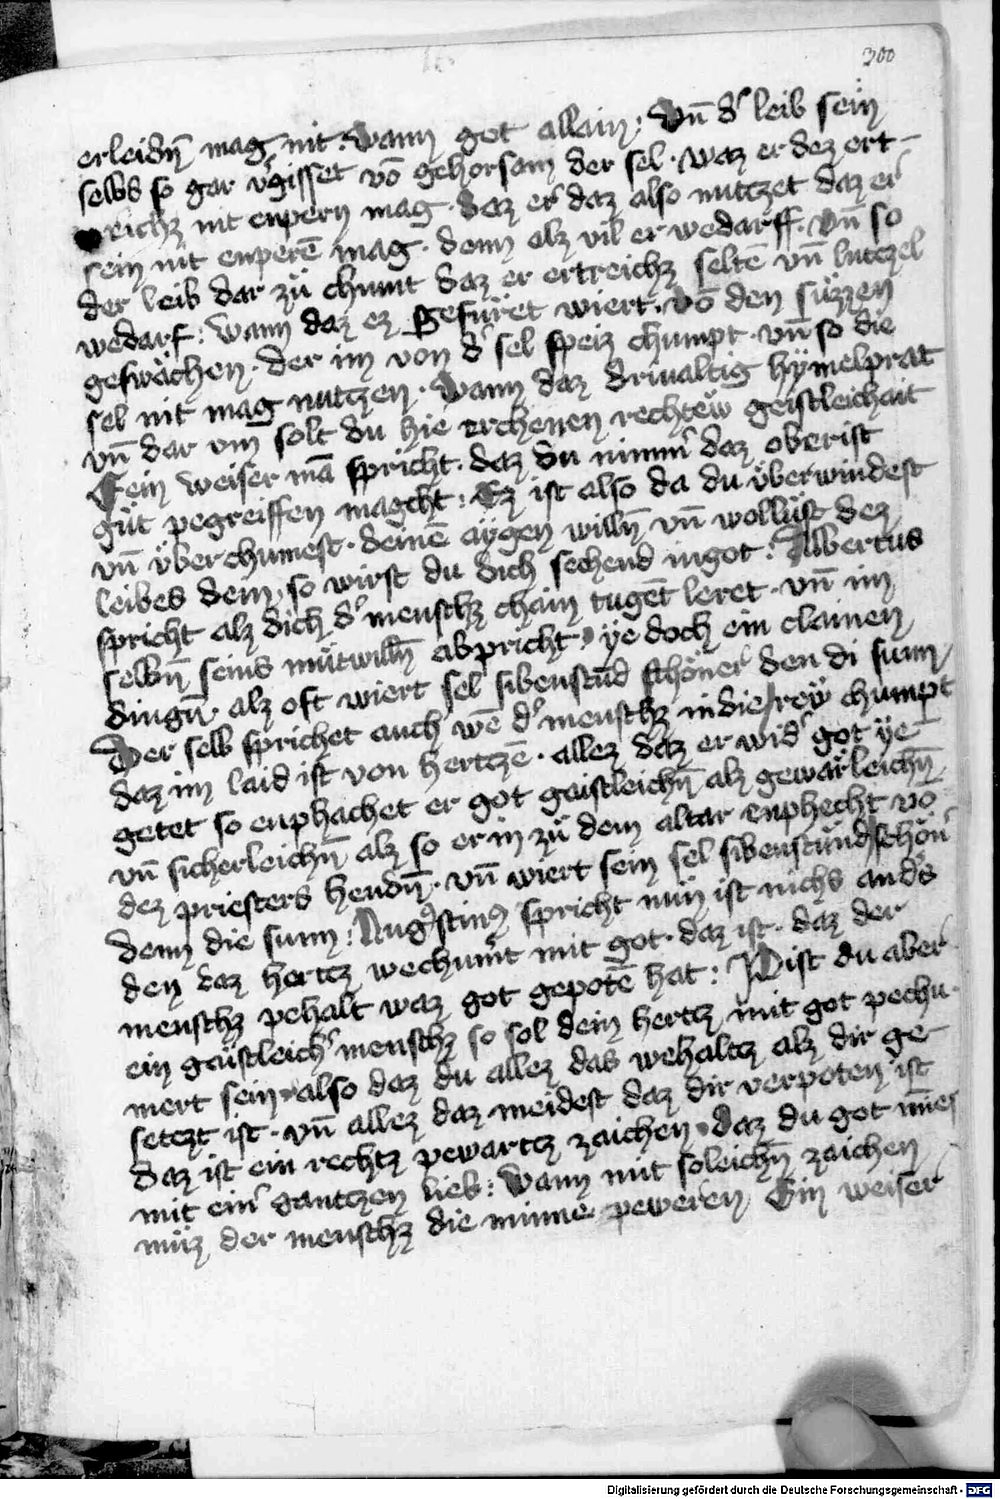 300
erleidn̄ mag nit. Wann got allain: Vn̄ dʼ leib sein
selbs so gar vʼgisset vō gehorsam der sel. waz er dez ert-
reichz nit enpern mag. daz er daz also nutczet daz er
sein nit enperē mag. denn alz vil er wedarff. Vn̄ so
der leib dar zů chumt daz er ertreichz seltē vn̄ lutczel
wedarf: Wann daz ez gefüret wiert. vō den süzzen
geswächen. der im von dʼ sel speiz chumpt. vn̄ so die
sel nit mag nutczen. Wann daz drivaltig hymelprat
vn̄ dar vm solt du hie erchenen rechtew geistleichait
Ein weiser mā spricht. daz du nimmʼ daz oberist
gůt pegreiffen magcht: Ez ist also da du überwindest
vn̄ überchumest. deinē aÿgen willn̄ vn̄ wollüst dez
leibes denn, so wirst du dich sechend in got: Albertus
spricht alz dich dʼ menschz chain tugēt leret. vn̄ im
selbn̄ seins mütwilln̄ abpricht. ye doch ein clainen
dingn̄. alz oft wiert sel sibenstūd schöner den di sunn
Der selb sprichet auch wē dʼ menschz in die rew chumpt
daz im laid ist von hertczē. allez daz er widʼ got ye
getet so enphachet er got gaistleichn̄ alz gewärleichn̄
vn̄ sicherleichn̄ alz so er in zů dem altar enphecht vō
dez priesters hendn̄. vn̄ wiert sein sel sibenstund schönʼ
denn die sunn: Augʼstinꝰ spricht nun ist nichs andʼs
den daz hertcz wechumʼt mit got. daz ist. daz der
menschz pehalt waz got gepotē hat: Pist du aber
ein gaistleichʼ menschz so sol dein hertcz mit got pechu-
mert sein also daz du allez das wehaltcz alz dir ge-
setczt ist. vn̄ allez daz meidest daz dir verpoten ist
daz ist ein rechtz pewartcz zaichen. Daz du got mīest
mit einʼ gantczen lieb: Wann mit soleichn̄ zaichen
můz der menschz die minne peweren Ein weiser
Digitalisierung gefördert durch die Deutsche Forschungsgemeinschaft · DFG